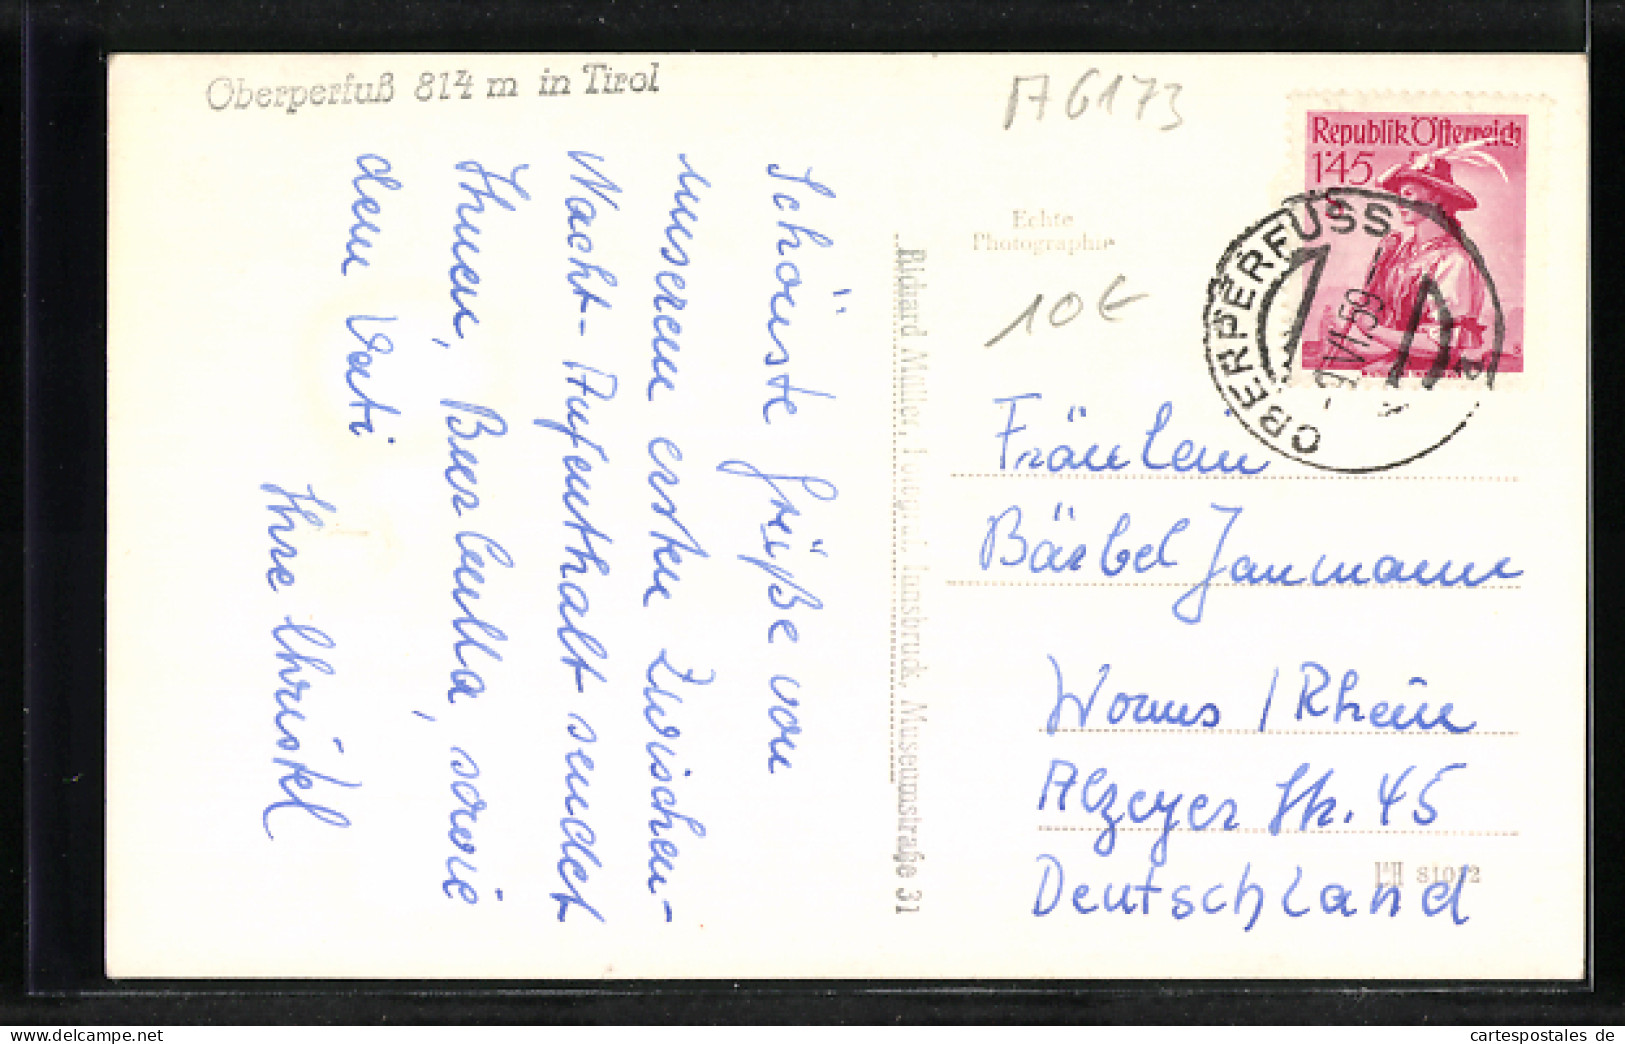 Oberperfuß 814 m in Tirol
A6173
Republik Österreich
1'45
Echte
Photographie
10€
OBERPERFUSS
-9.VII.59
Schönste Grüße von
unserem ersten Zwischen-
Nacht-Aufenthalt sendet
Ihnen, sowie
dem Vati
Ihre Christel
Richard Müller, Fotograf, Innsbruck, Museumstraße 31
Fräulein
Bärbel Janmann
Worms / Rhein
Alzeyer Str. 45
Deutschland
cartespostales de